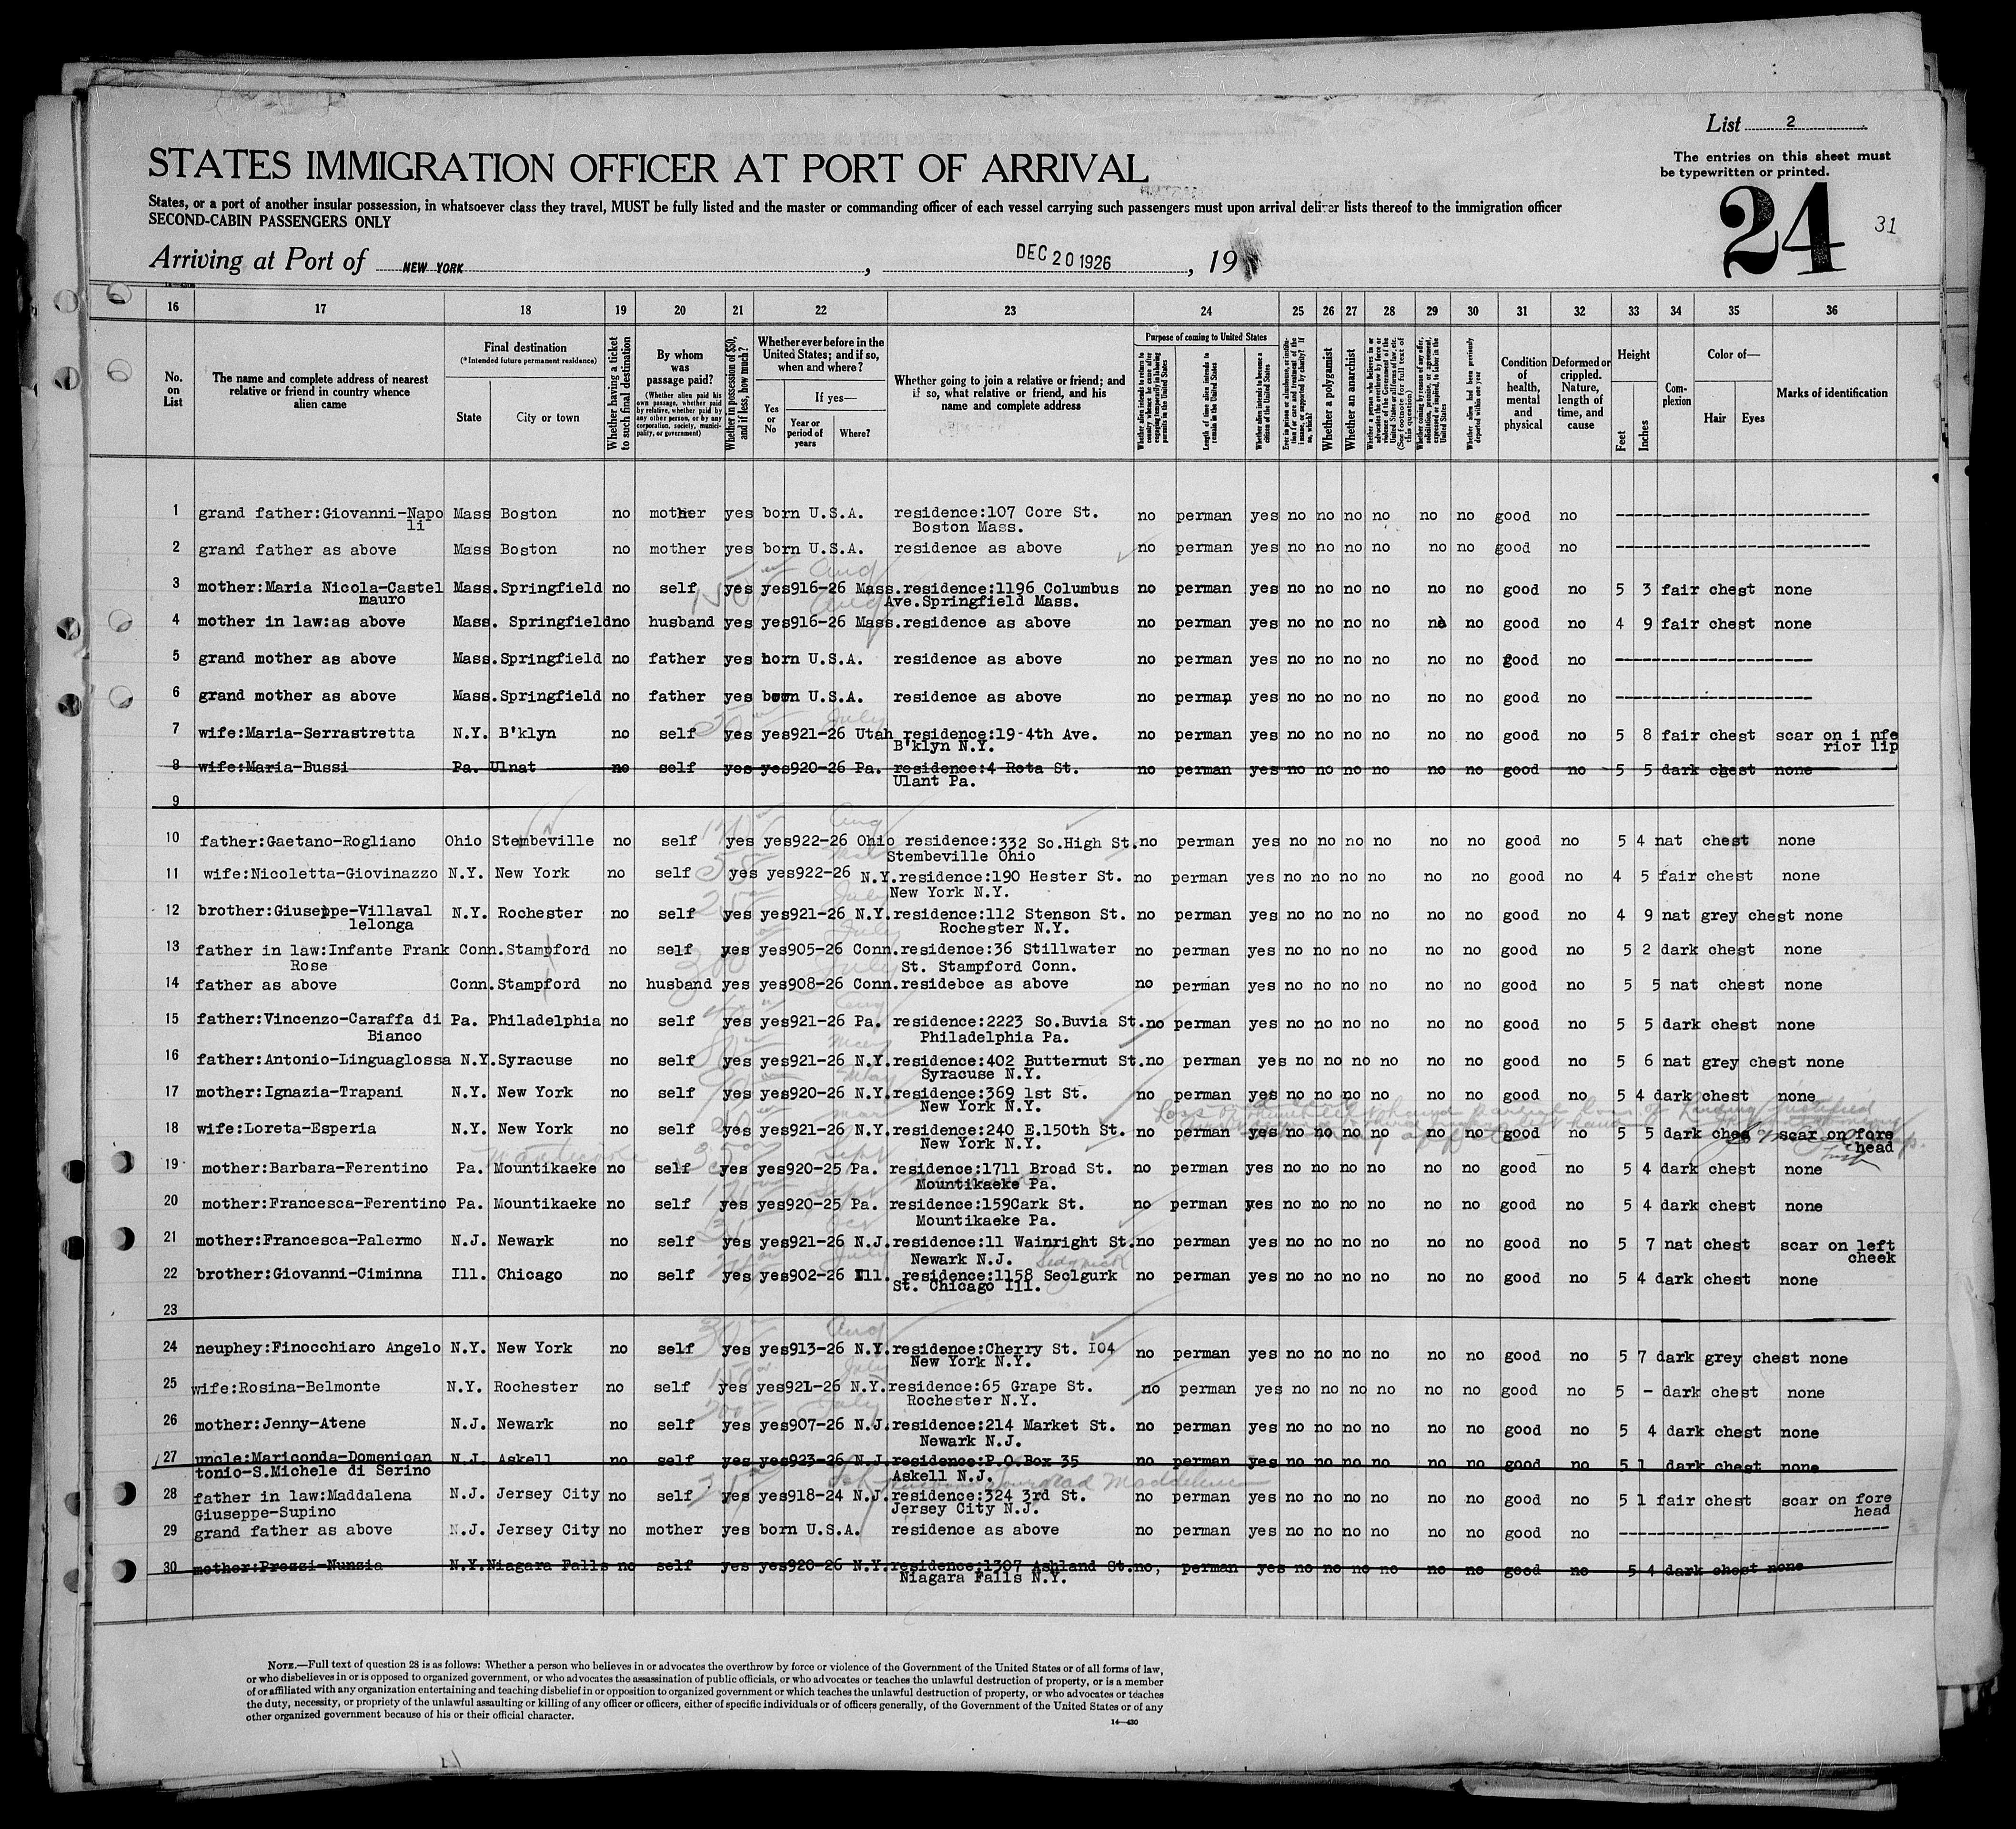 List 2
The entries on this sheet must
be typewritten or printed.
STATES IMMIGRATION OFFICER AT PORT OF ARRIVAL
24
31
States, or a port of another insular possession, in whatsoever class they travel, MUST be fully listed and the master or commanding officer of each vessel carrying such passengers must upon arrival deliver lists thereof to the immigration officer
SECOND-CABIN PASSENGERS ONLY
Arriving at Port of NEW YORK, DEC 20 1926, 19
16 17 18 19 20 21 22 23 24 25 26 27 28 29 30 31 32 33 34 35 36
No. on List
The name and complete address of nearest relative or friend in country whence alien came
Final destination
(*Intended future permanent residence)
State
City or town
Whether having a ticket to such final destination
By whom was passage paid?
(Whether alien paid his own passage, whether paid by relative, whether paid by any other person, or by any corporation, society, municipality, or government)
Whether in possession of $50, and if less, how much?
Whether ever before in the United States; and if so, when and where?
Yes or No
If yes—
Year or period of years
Where?
Whether going to join a relative or friend; and if so, what relative or friend, and his name and complete address
Purpose of coming to United States
Whether alien intends to return to country whence he came after engaging temporarily in laboring pursuits in the United States
Length of time alien intends to remain in the United States
Whether alien intends to become a citizen of the United States
Ever in prison or almshouse, or institution for care and treatment of the insane, or supported by charity? If so, which?
Whether a polygamist
Whether an anarchist
Whether a person who believes in or advocates the overthrow by force or violence of the Government of the United States or all forms of law, etc. (See footnote for full text of this question)
Whether coming by reason of any offer, solicitation, promise, or agreement, expressed or implied, to labor in the United States
Whether alien had been previously deported within one year
Condition of health, mental and physical
Deformed or crippled. Nature, length of time, and cause
Height
Feet
Inches
Complexion
Color of—
Hair
Eyes
Marks of identification
1 grand father:Giovanni-Napo Mass Boston no mother yes born U.S.A. residence:107 Core St. no perman yes no no no no no no good no ----------
li Boston Mass.
2 grand father as above Mass Boston no mother yes born U.S.A. residence as above no perman yes no no no no no no good no ----------
Aug
3 mother:Maria Nicola-Castel Mass. Springfield no self yes yes916-26 Mass.residence:1196 Columbus no perman yes no no no no no no good no 5 3 fair chest none
mauro Ave.Springfield Mass.
4 mother in law:as above Mass. Springfield no husband yes yes916-26 Mass.residence as above no perman yes no no no no no no good no 4 9 fair chest none
5 grand mother as above Mass.Springfield no father yes born U.S.A. residence as above no perman yes no no no no no no good no ----------
6 grand mother as above Mass.Springfield no father yes born U.S.A. residence as above no perman, yes no no no no no no good no ----------
July
7 wife:Maria-Serrastretta N.Y. B'klyn no self yes yes921-26 Utah residence:19-4th Ave. no perman yes no no no no no no good no 5 8 fair chest scar on i nfe
B'klyn N.Y. rior lip
8 wife:Maria-Bussi Pa. Ulnat no self yes yes920-26 Pa. residence:4 Rota St. no perman yes no no no no no no good no 5 5 dark chest none
Ulant Pa.
9
Aug
10 father:Gaetano-Rogliano Ohio Stembeville no self yes yes922-26 Ohio residence:332 So.High St.no perman yes no no no no no no good no 5 4 nat chest none
Stembeville Ohio
11 wife:Nicoletta-Giovinazzo N.Y. New York no self yes yes922-26 N.Y.residence:190 Hester St. no perman yes no no no no no no good no 4 5 fair chest none
New York N.Y.
July
12 brother:Giuseppe-Villaval N.Y. Rochester no self yes yes921-26 N.Y.residence:112 Stenson St. no perman yes no no no no no no good no 4 9 nat grey chest none
lelonga Rochester N.Y.
July
13 father in law:Infante Frank Conn.Stampford no self yes yes905-26 Conn.residence:36 Stillwater no perman yes no no no no no no good no 5 2 dark chest none
Rose St. Stampford Conn.
300 July
14 father as above Conn.Stampford no husband yes yes908-26 Conn.residebce as above no perman yes no no no no no no good no 5 5 nat chest none
15 father:Vincenzo-Caraffa di Pa. Philadelphia no self yes yes921-26 Pa. residence:2223 So.Buvia St.no perman yes no no no no no no good no 5 5 dark chest none
Bianco Philadelphia Pa.
16 father:Antonio-Linguaglossa N.Y.Syracuse no self yes yes921-26 N.Y.residence:402 Butternut St.no perman yes no no no no no no good no 5 6 nat grey chest none
Syracuse N.Y.
May
17 mother:Ignazia-Trapani N.Y. New York no self yes yes920-26 N.Y.residence:369 1st St. no perman yes no no no no no no good no 5 4 dark chest none
New York N.Y.
18 wife:Loreta-Esperia N.Y. New York no self yes yes921-26 N.Y.residence:240 E.150th St. no perman yes no no no no no no good no 5 5 dark ches scar on fore
New York N.Y. head
Nanticoke Sept
19 mother:Barbara-Ferentino Pa. Mountikaeke no self yes yes920-25 Pa. residence:1711 Broad St. no perman yes no no no no no no good no 5 4 dark chest none
Mountikaeke Pa.
Sept
20 mother:Francesca-Ferentino Pa. Mountikaeke no self yes yes920-25 Pa. residence:159Cark St. no perman yes no no no no no no good no 5 4 dark chest none
Mountikaeke Pa.
21 mother:Francesca-Palermo N.J. Newark no self yes yes921-26 N.J.residence:11 Wainright St.no perman yes no no no no no no good no 5 7 nat chest scar on left
Newark N.J. cheek
July Sedgwick
22 brother:Giovanni-Ciminna Ill. Chicago no self yes yes902-26 Ill. residence:1158 Seclgurk no perman yes no no no no no no good no 5 4 dark chest none
St. Chicago Ill.
23
Aug
24 neuphey:Finocchiaro Angelo N.Y. New York no self yes yes913-26 N.Y.residence:Cherry St. I04 no perman yes no no no no no no good no 5 7 dark grey chest none
New York N.Y.
150 July
25 wife:Rosina-Belmonte N.Y. Rochester no self yes yes921-26 N.Y.residence:65 Grape St. no perman yes no no no no no no good no 5 - dark chest none
Rochester N.Y.
200 July
26 mother:Jenny-Atene N.J. Newark no self yes yes907-26 N.J.residence:214 Market St. no perman yes no no no no no no good no 5 4 dark chest none
Newark N.J.
27 uncle:Mariconda-Domenican N.J. Askell no self yes yes923-26 N.J.residence:P.O.Box 35 no perman yes no no no no no no good no 5 1 dark chest none
tonio-S.Michele di Serino Askell N.J.
28 father in law:Maddalena N.J. Jersey City no self yes yes918-24 N.J.residence:324 3rd St. no perman yes no no no no no no good no 5 1 fair chest scar on fore
Giuseppe-Supino Jersey City N.J. head
29 grand father as above N.J. Jersey City no mother yes born U.S.A. residence as above no perman yes no no no no no no good no ----------
30 mother:Prezzi-Nunzia N.Y.Niagara Falls no self yes yes920-26 N.Y.residence:1307 Ashland St.no, perman yes no no no no no no good no 5 4 dark chest none
Niagara Falls N.Y.
NOTE.—Full text of question 28 is as follows: Whether a person who believes in or advocates the overthrow by force or violence of the Government of the United States or of all forms of law,
or who disbelieves in or is opposed to organized government, or who advocates the assassination of public officials, or who advocates or teaches the unlawful destruction of property, or is a member
of or affiliated with any organization entertaining and teaching disbelief in or opposition to organized government or which teaches the unlawful destruction of property, or who advocates or teaches
the duty, necessity, or propriety of the unlawful assaulting or killing of any officer or officers, either of specific individuals or of officers generally, of the Government of the United States or of any
other organized government because of his or their official character.
14—430